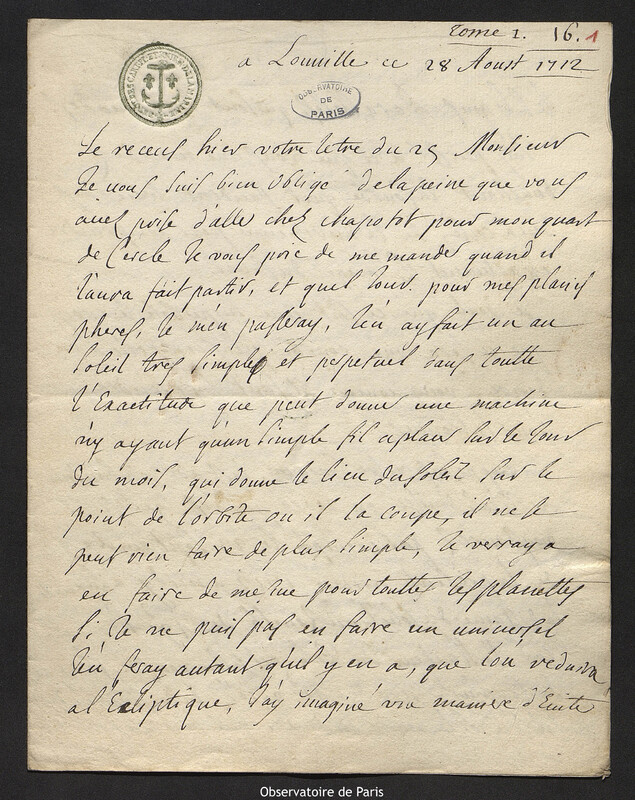 Tome 1. 16. 1
a Louville ce 28 Aoust 1712
OBSERVATOIRE
DE
PARIS
Je receus hier votre letre du 25 Monsieur
Je vous suis bien obligé de la peine que vous
avez prise d'aller chez chapotot pour mon quart
de Cercle Je vous prie de me mander quand il
l'aura fait partir, et quel Jour. pour mes planis
pheres, Je m'en passeray, J'en ay fait un au
soleil tres simple et perpetuel dans toutte
l'Exactitude que peut donner une machine
n'y ayant qu'un simple fil a placer sur le Jour
du mois, qui donne le lieu du soleil sur le
point de l'orbite ou il la coupe, il ne se
peut rien faire de plus simple, Je verray a
en faire de mesme pour touttes les planettes
si Je ne puis pas en faire un universel
J'en feray autant qu'il y en a, que l'on reduira
a l'Ecliptique, J'ay imaginé une maniere d'Eviter
Observatoire de Paris